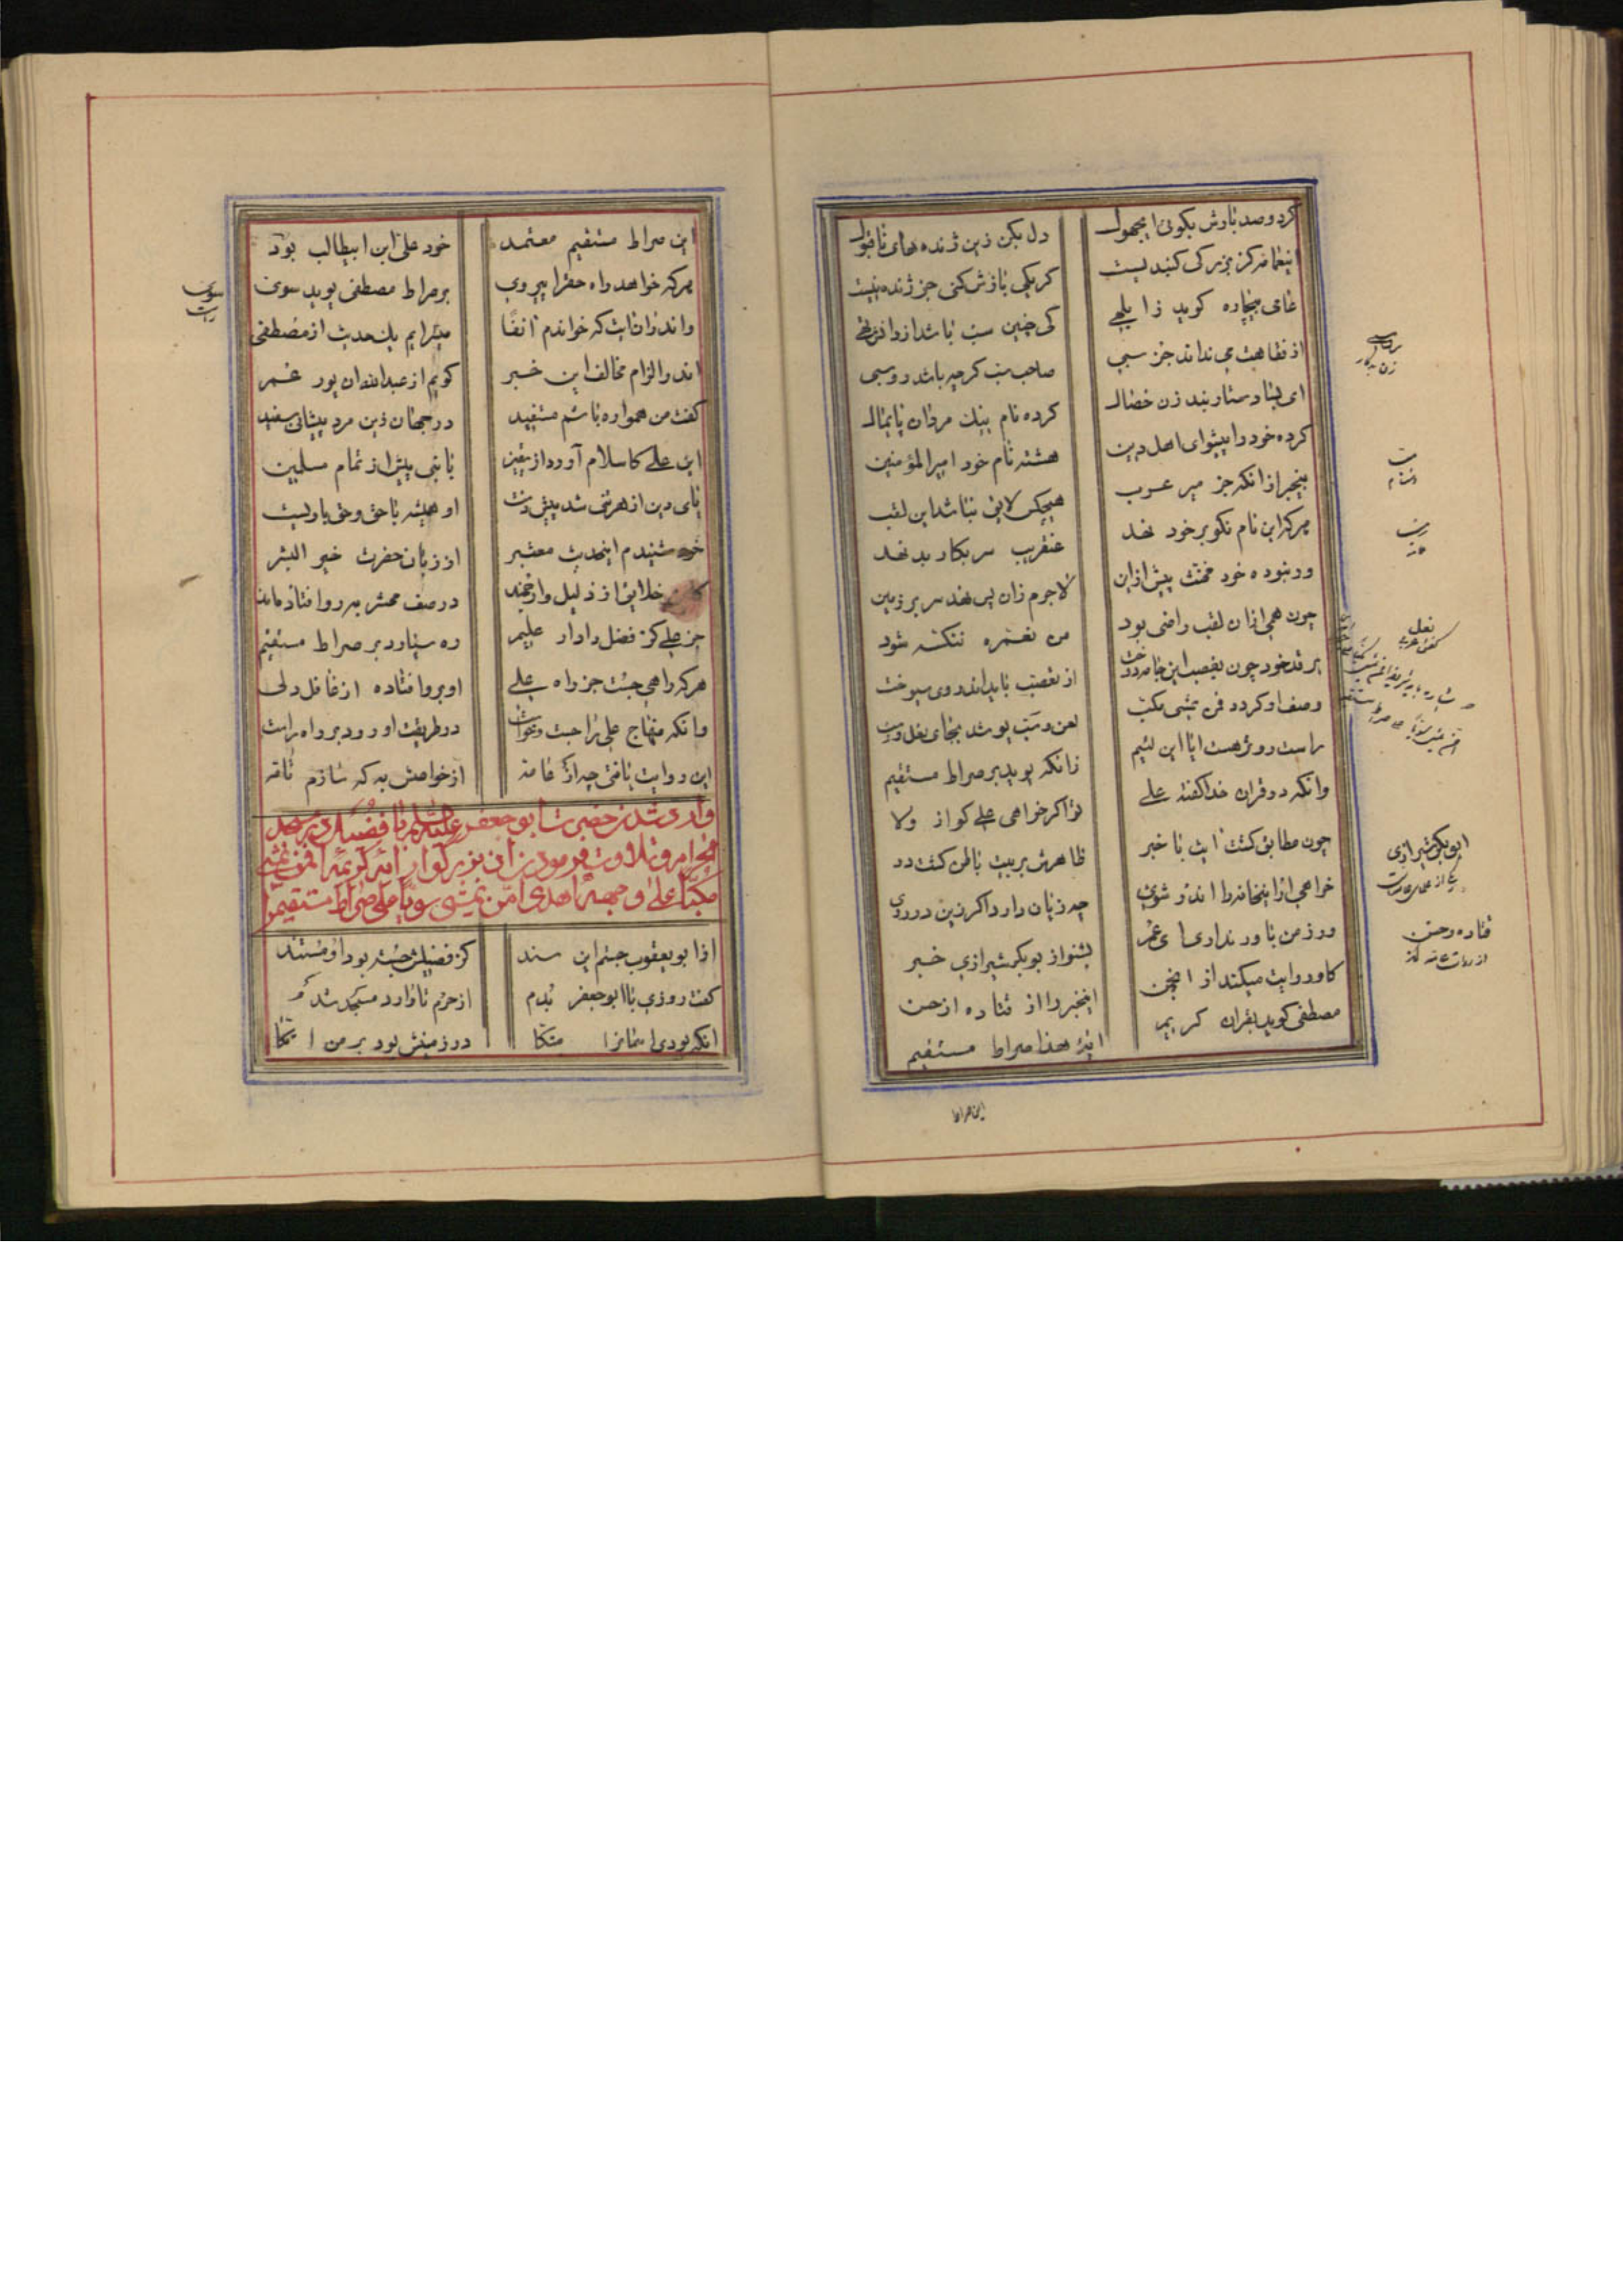 کرد و صد بارش بکوئی ایجهول دل بکن زین ژنده های ناقبول
اینعامه کز بزرکی کنبدیست کر یکی بازش کنی جز ژنده نیست
عامی بیچاره کوید زابلهی کی چنین سب باشد از دانش تهی
از فقاهت می نداند جز سبی صاحب سب کرچه باشد روسبی
ای بسا دستاربند زن خصال کرده نام نیک مردان پایمال
کرده خود را پیشوای اهل دین هشته نام خود امیرالمؤمنین
بیخبر از انکه جز میر عرب هیچکس لایق نباشد این لقب
هرکه این نام نکو بر خود نهد عنقریب سر بکار بد نهد
ور نبوده خود مخنث پیش ازان لاجرم زان پس نهد سر بر زمین
چون همی ازان لقب راضی بود من نعمره ننکسه شود
بر قد خود چون بغصب این جامه دوخت از تعصب باید اندر وی بسوخت
وصف او کردد فمن یمشی مکب لعن و سب پوشد بجای نعل و
راست رو تر هست ایا این لئیم زانکه پوید بر صراط مستقیم
وانکه در قران خدا کفته علی تو اکر خواهی علی کو از ولا
چون مطابق کشت ایت با خبر ظاهرش بربیت باطن کشت در
خواهی ار اینخانه را اندر شوی چه زیان دارد اکر زین در روی
ور ز من باور نداری ای عمر بشنو از بوبکر شیرازی خبر
کاو روایت میکند از انجمن اینخبر را از قتاده از حسن
مصطفی کوید بقران کریم انه هذا صراط مستقیم
روسبی
زن بدکار
سب
دشنام
نعل
کفش
ابوبکر شیرازی
یکی از علمای عامه است
قتاده و حسن
از روات عامه اند
این صراط
این صراط مستقیم معتمد خود علی ابن ابیطالب بود
هرکه خواهد راه حقرا پیروی بر صراط مصطفی پوید سوی
واندران ایت که خواندم انفا میسرایم یک حدیث از مصطفی
اندر الزام مخالف این خبر کویم از عبدالله ان پور عمر
کفت من همواره باشم مستفید در جهان زین مرد پیشانی سفید
این علی کاسلام آورد از یقین با نبی پیش از تمام مسلمین
پای دین از هر تنی شد پیش و او همیشه با حق و حق با ویست
خود شنیدم اینحدیث معتبر از زبان حضرت خیر البشر
کاین خلایق از ذلیل و ارجمند در صف محشر برو افتاده‌اند
جز علی کز فضل دادار علیم ره سپارد بر صراط مستقیم
هرکه راهی جست جز راه علی او برو افتاده از غافل دلی
وانکه منهاج علی را جست و خواست در طریقت او رود بر راه راست
این روایت یافتی چه از عامه از خواصش به که سازم نامه
وارد شدن حضرت ابو جعفر علیه السلم با فضیل در مسجد
الحرام و تلاوت فرمودن ان بزرکوار ایه کریمه افمن یمشی
مکبا علی وجهه اهدی امن یمشی سویا علی صراط مستقیم را
از ابو یعقوب جستم این سند کز فضیلش جسته بود او مستند
کفت روزی با ابوجعفر بدم از حرم تا وارد مسجد شدم
انکه بودی اسمانرا متکا در زمینش بود بر من اتکا
سوی
راست